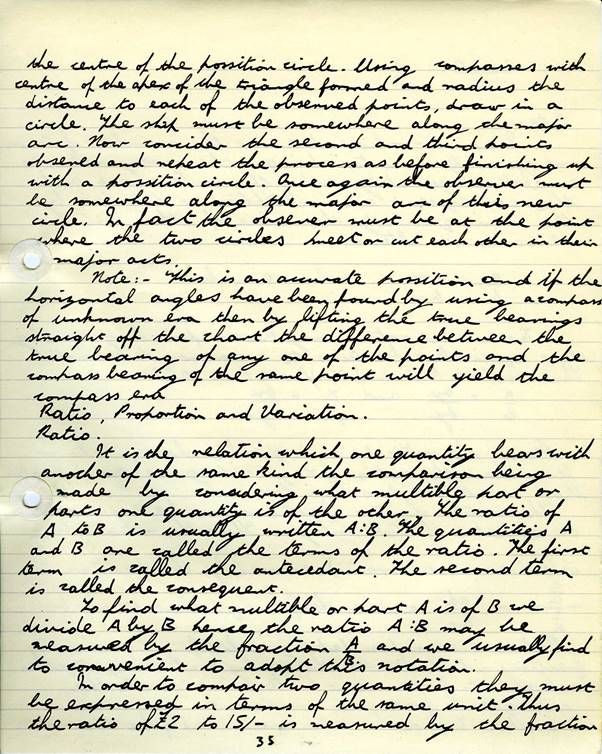 the centre of the possition circle. Using compasses with
centre of the apex of the triangle formed and radius the
distance to each of the observed points, draw in a
circle. The ship must be somewhere along the major
arc. Now concider the second and third points
obsered and repeat the process as before finishing up
with a possition circle. Once again the observer must
be somewhere along the major arc of this new
circle. In fact the obsever must be at the point
where the two circles meet or cut each other in their
major acts.
Note:- This is an accurate possition and if the
horizontal angles have been found by using a compass
of unknown era then by lifting the true bearings
straight off the chart the difference between the
true bearing of any one of the points and the
compass bearing of the same point will yield the
compass era
Ratio, Proportion and Variation.
Ratio.
It is the relation which one quantity bears with
another of the same kind the comparison being
made by concidering what multible part or
parts one quantity is of the other. The ratio of
A to B is usually written A:B. The quantities A
and B are called the terms of the ratio. The first
term is called the antecedant. The second term
is called the consequent.
To find what multible or part A is of B we
divide A by B hence the ratio A:B may be
measured by the fraction A/B and we usually find
to convenient to adopt this notation.
In order to compair two quantities they must
be expressed in terms of the same unit. Thus
the ratio of £2 to 15/- is measured by the fraction
35